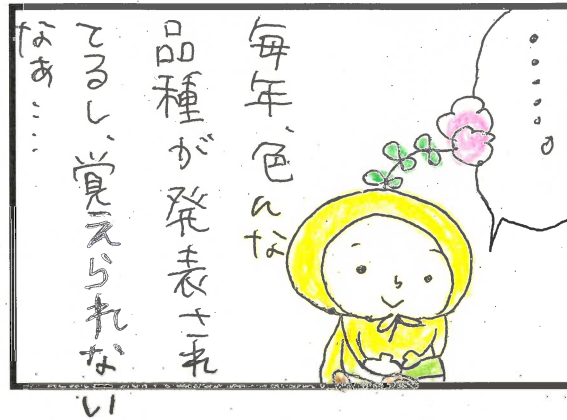 ・・・・・。
毎年、色んな
品種が発表され
てるし、覚えられない
なぁ….